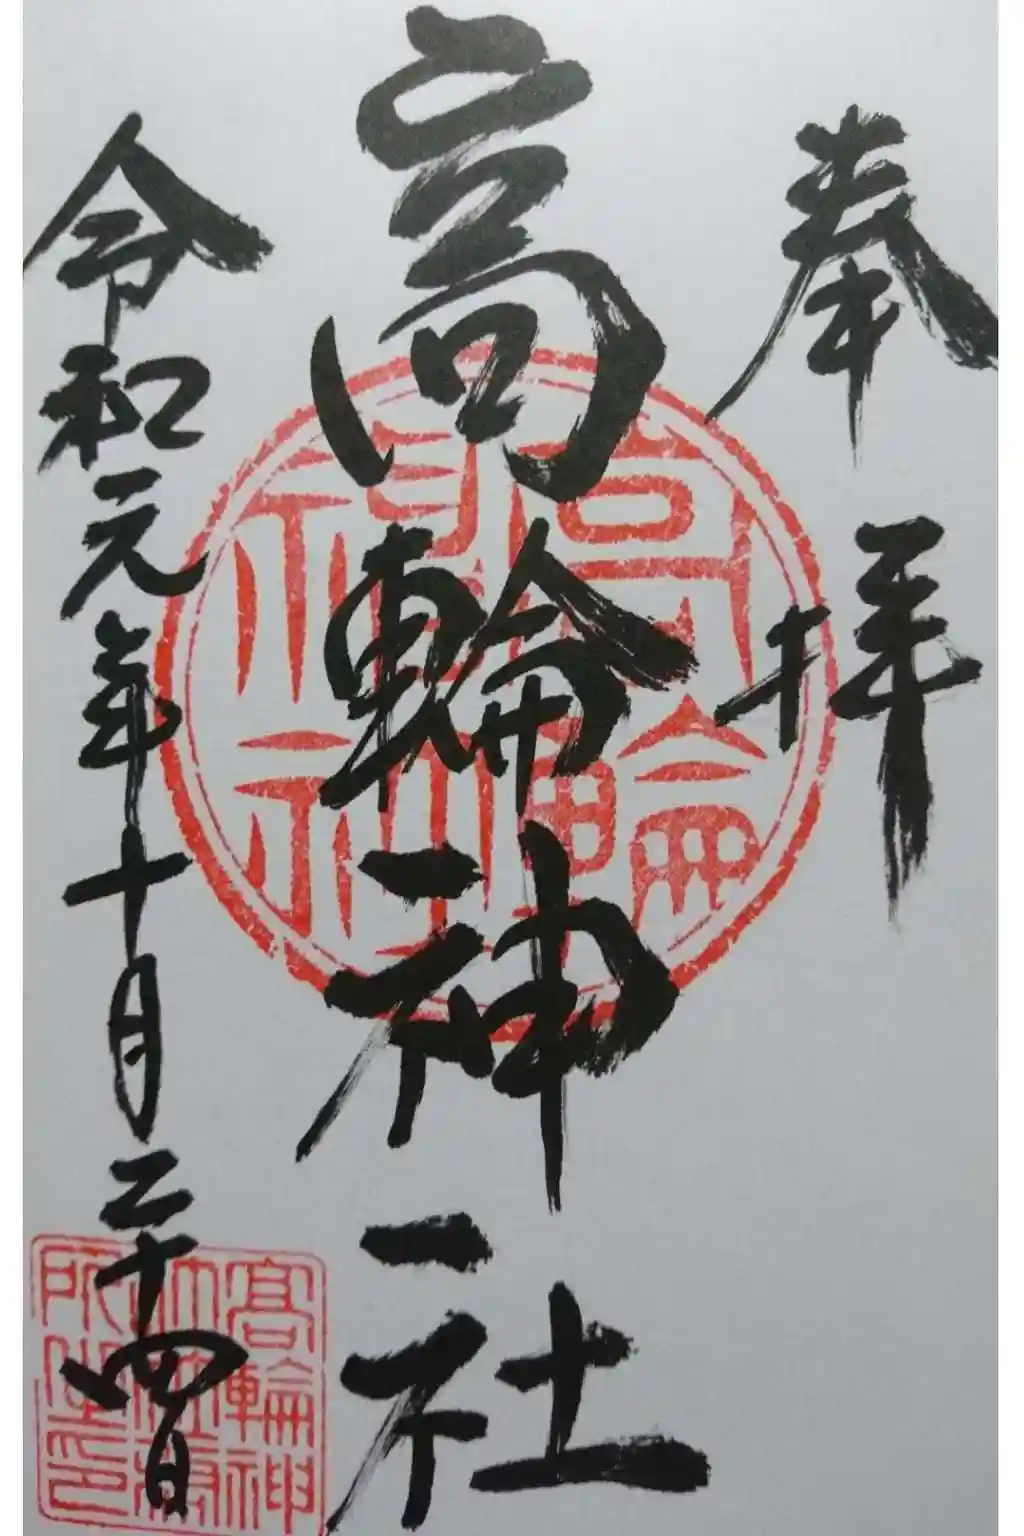 奉拝
高輪神社
令和元年十月二十四日
高輪神社
高輪神
社社務
所之印